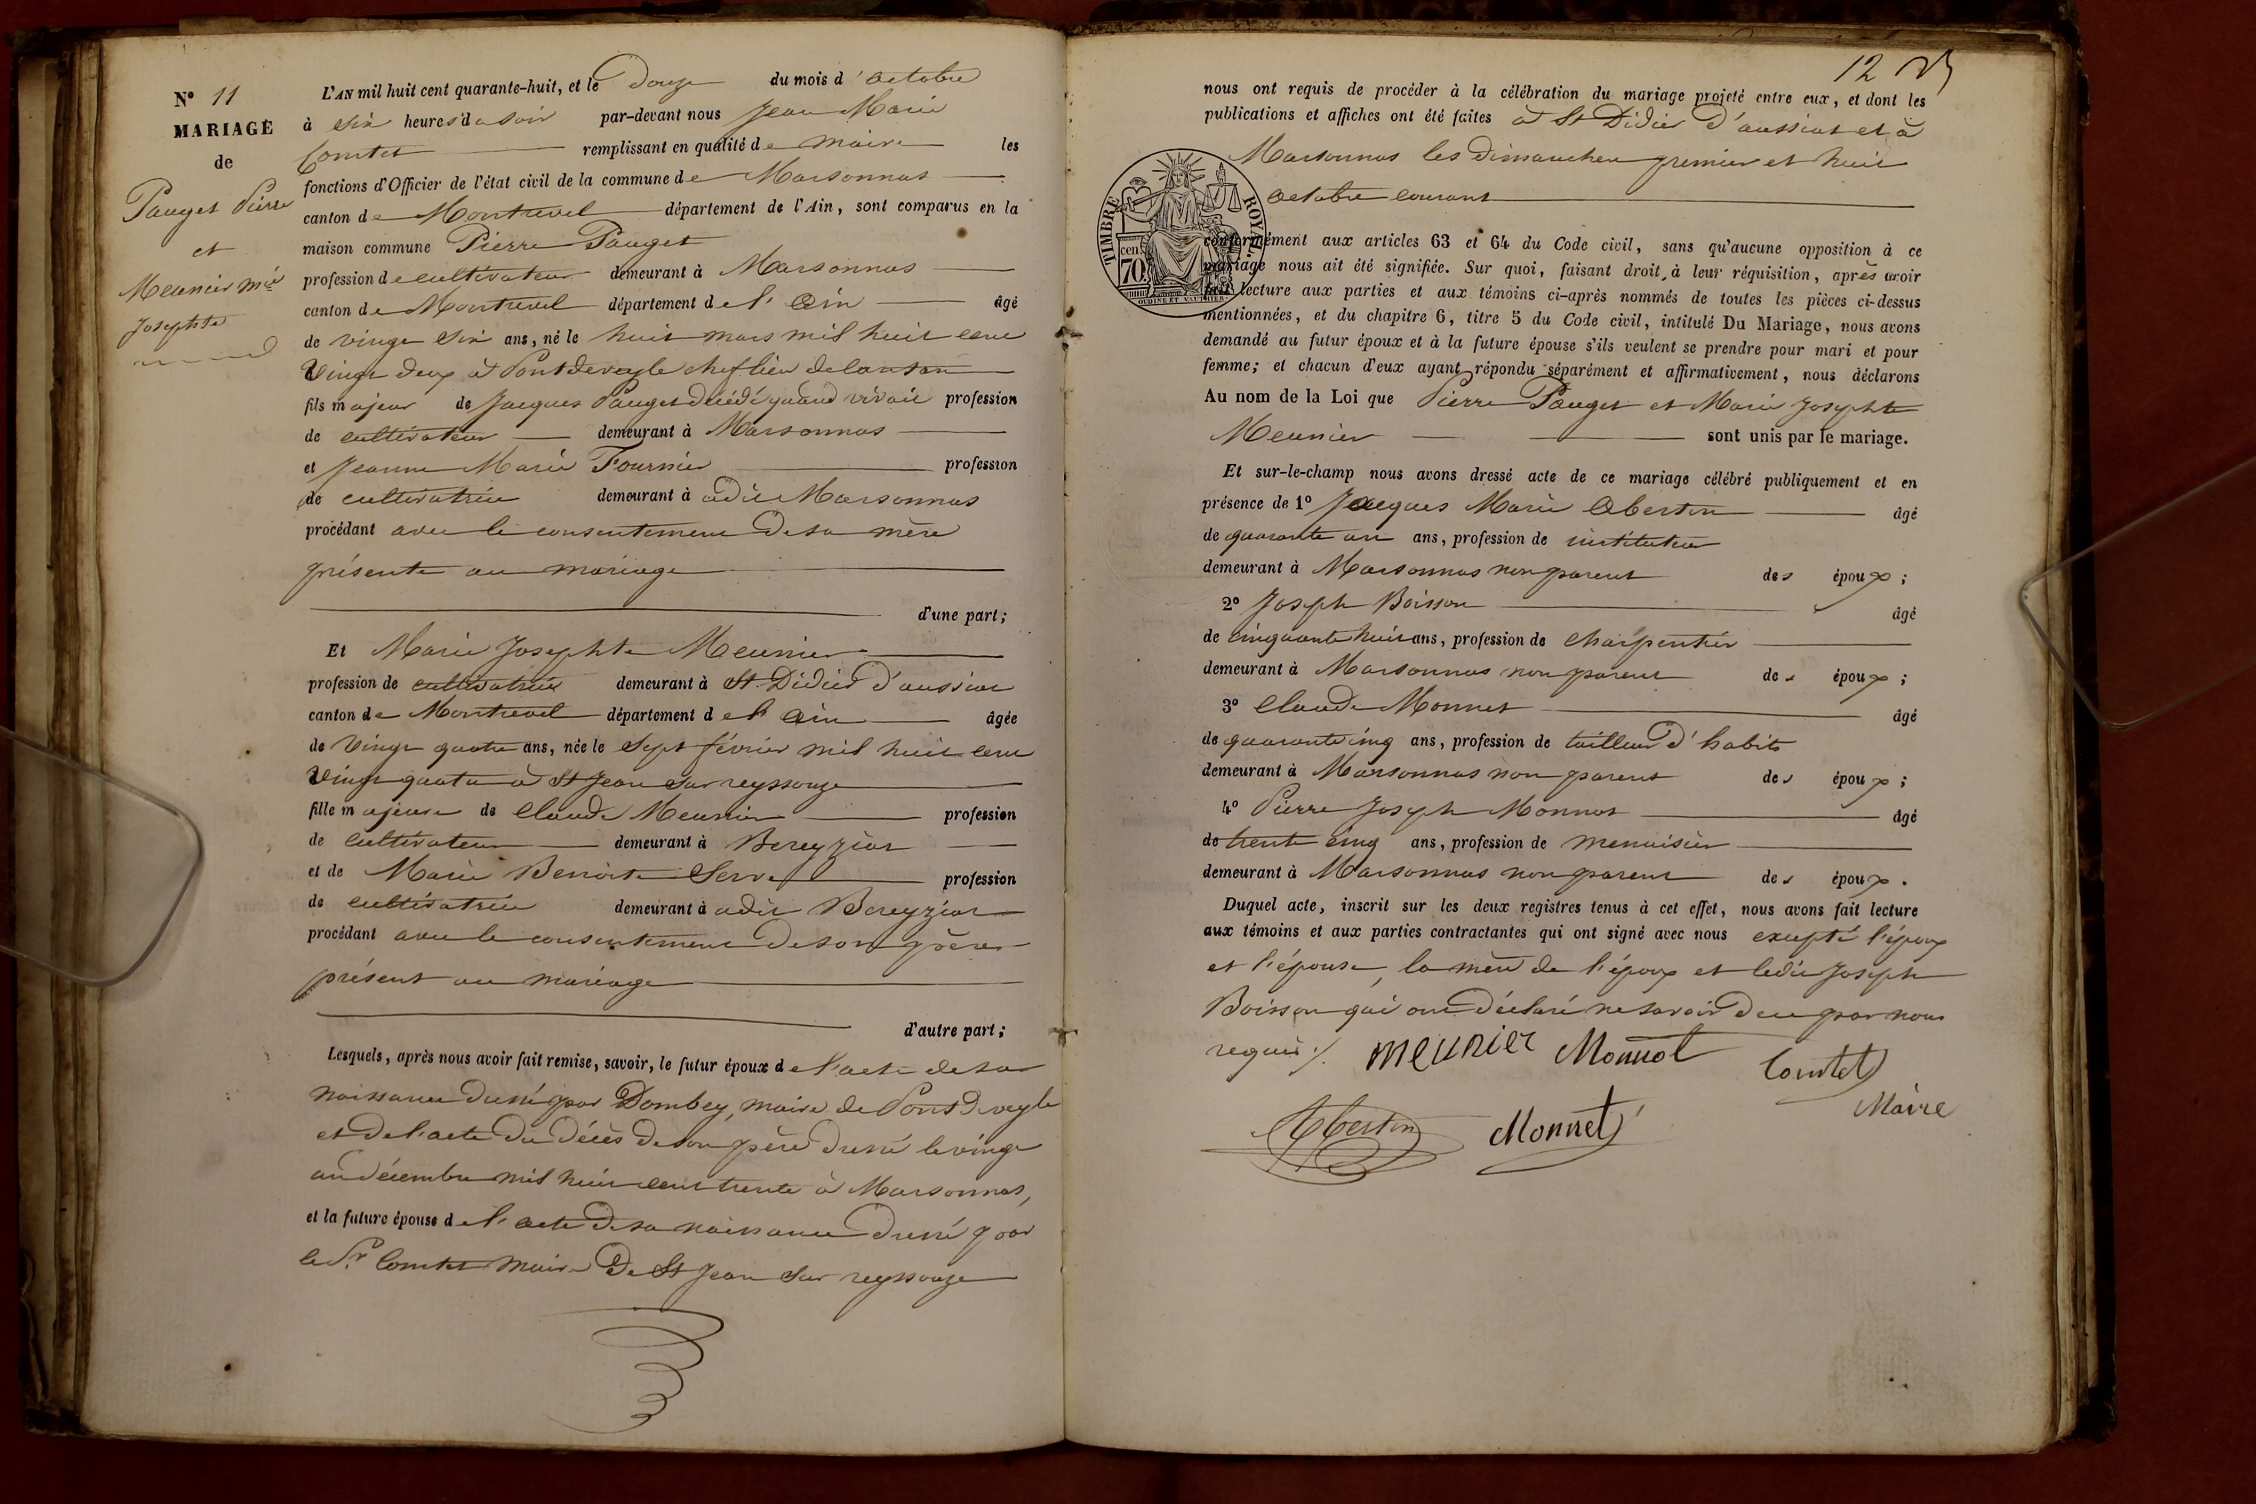 N° 11
MARIAGE
de
Pauget Pierre
et
Meunier Mie
Josephte
L'AN mil huit cent quarante-huit, et le Douze du mois d'octobre
à six heures du soir par-devant nous Jean Marie
Comtet remplissant en qualité de maire les
fonctions d'Officier de l'état civil de la commune de Marsonnas
canton de Montrevel département de l'Ain, sont comparus en la
maison commune Pierre Pauget
profession de cultivateur demeurant à Marsonnas
canton de Montrevel département de l'Ain âgé
de vingt six ans, né le huit mars mil huit cent
vingt deux à Pont de veyle chef lieu de canton
fils majeur de Jacques Pauget décédé quand vivait profession
de cultivateur demeurant à Marsonnas
et Jeanne Marie Fournier profession
de cultivatrice demeurant à audit Marsonnas
procédant avec le consentement de sa mère
présente au mariage
d'une part;
Et Marie Josephte Meunier
profession de cultivatrice demeurant à St Didier d'aussiat
canton de Montrevel département de l'Ain âgée
de vingt quatre ans, née le sept février mil huit cent
vingt quatre à St Jean sur reyssouze
fille majeure de Claude Meunier profession
de cultivateur demeurant à Bereyziat
et de Marie Benoite Serve profession
de cultivatrice demeurant à audit Bereyziat
procédant avec le consentement de son père
présent au mariage
d'autre part;
Lesquels, après nous avoir fait remise, savoir, le futur époux de l'acte de sa
naissance dressé par Dombey, maire de Pont de veyle
et de l'acte du décès de son père dressé le vingt
un décembre mil huit cent trente à Marsonnas,
et la future épouse de l'acte de sa naissance dressé par
le Sr Comtet maire de St Jean sur reyssouze
12
nous ont requis de procéder à la célébration du mariage projeté entre eux, et dont les
publications et affiches ont été faites à St Didier d'aussiat et à
Marsonnas les dimanches premier et huit
octobre courant
TIMBRE ROYAL.
cen. 70
OUDINÉ ET VAUTHIER
conformément aux articles 63 et 64 du Code civil, sans qu'aucune opposition à ce
mariage nous ait été signifiée. Sur quoi, faisant droit à leur réquisition, après avoir
fait lecture aux parties et aux témoins ci-après nommés de toutes les pièces ci-dessus
mentionnées, et du chapitre 6, titre 5 du Code civil, intitulé Du Mariage, nous avons
demandé au futur époux et à la future épouse s'ils veulent se prendre pour mari et pour
femme; et chacun d'eux ayant répondu séparément et affirmativement, nous déclarons
Au nom de la Loi que Pierre Pauget et Marie Josephte
Meunier sont unis par le mariage.
Et sur-le-champ nous avons dressé acte de ce mariage célébré publiquement et en
présence de 1° Jacques Marie Aberton âgé
de quarante un ans, profession de instituteur
demeurant à Marsonnas non parent des époux;
2° Joseph Boisson âgé
de cinquante huit ans, profession de charpentier
demeurant à Marsonnas non parent des époux;
3° Claude Monnet âgé
de quarante cinq ans, profession de tailleur d'habits
demeurant à Marsonnas non parent des époux;
4° Pierre Joseph Monnot âgé
de trente cinq ans, profession de menuisier
demeurant à Marsonnas non parent des époux.
Duquel acte, inscrit sur les deux registres tenus à cet effet, nous avons fait lecture
aux témoins et aux parties contractantes qui ont signé avec nous excepté l'époux
et l'épouse, la mère de l'époux et ledit Joseph
Boisson qui ont déclaré ne savoir de ce par nous
requis ./.
meunier Monnot Comtet
Maire
Aberton Monnet